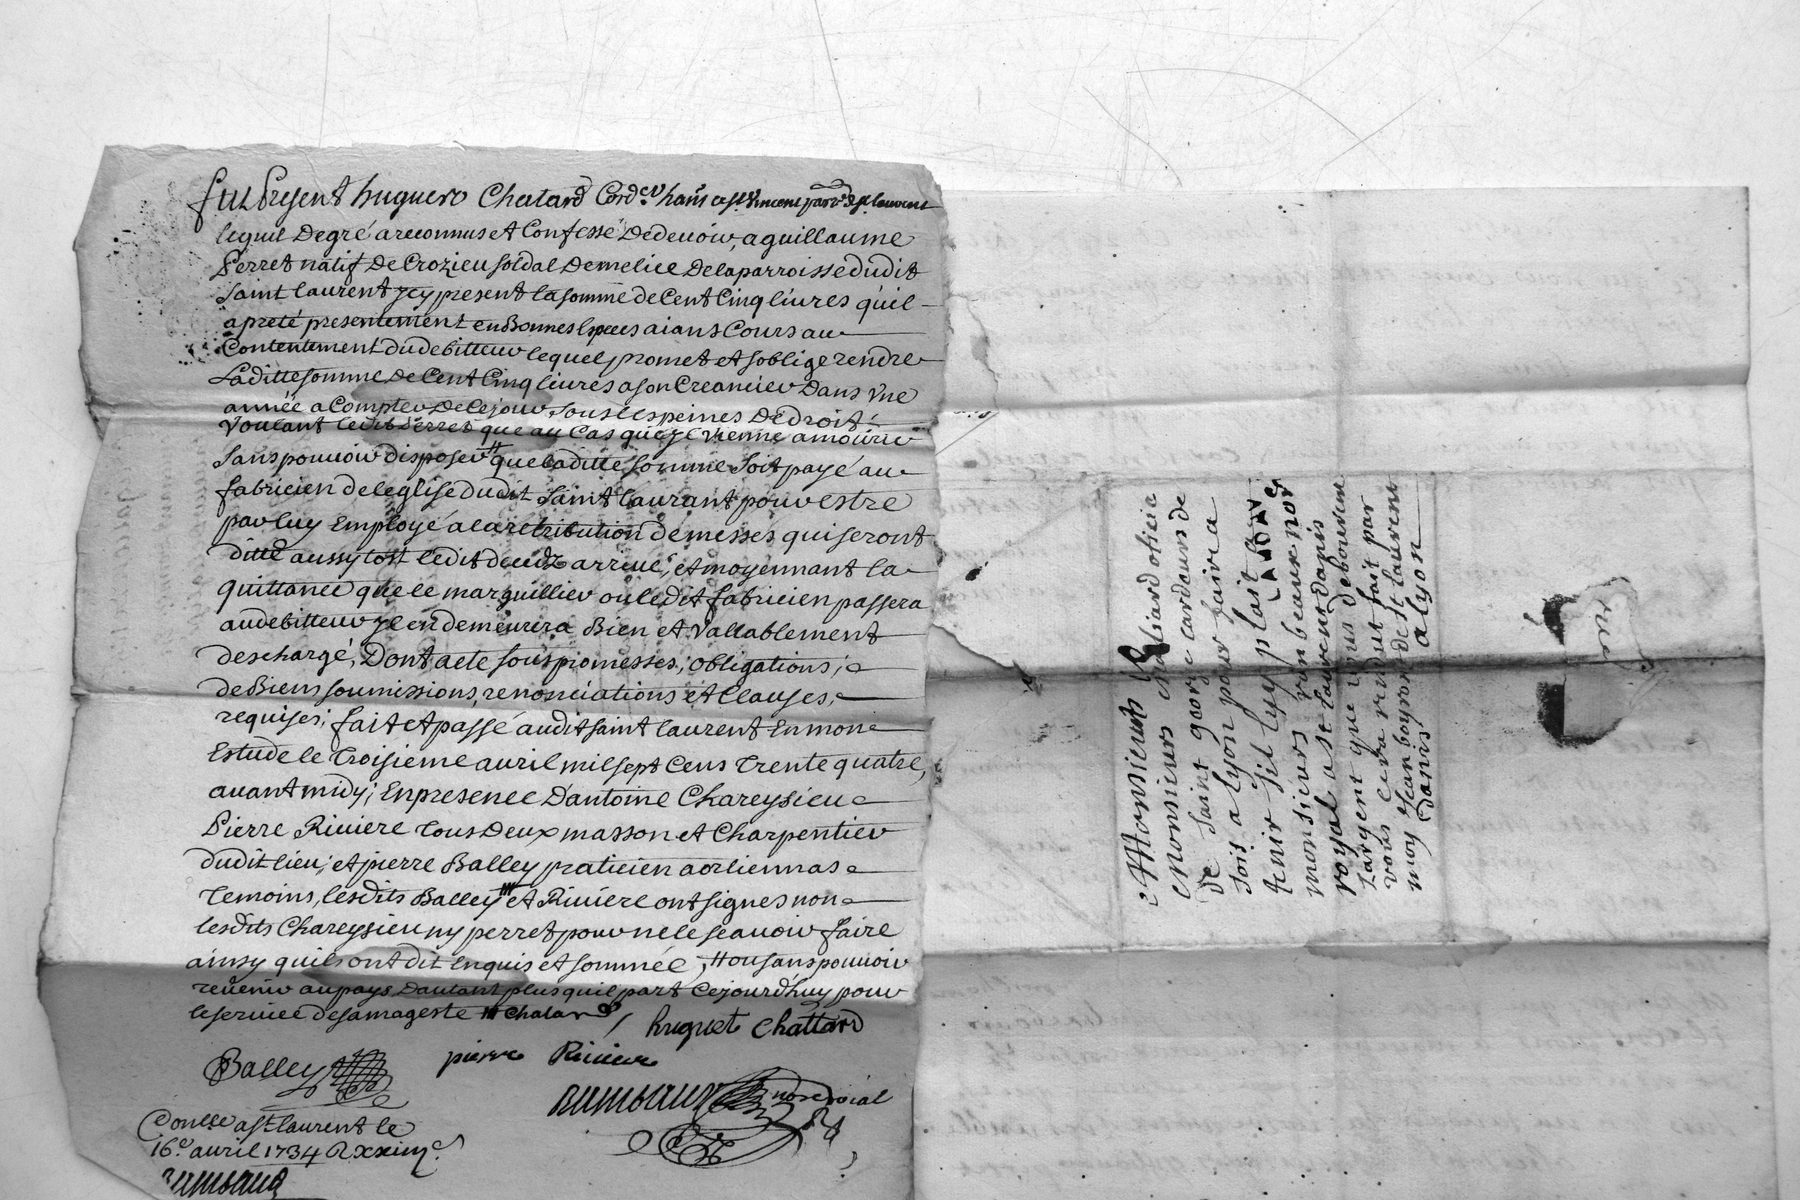 fut present huguero Chatard Cord.er ha[...] a st vincent parr.e de st laurent
lequel Degré a reconnus et Confessé De devoir, a guillaume
Perret natif De Crozieu soldal De melice De la parroisse dudit
Saint laurent jcy present la somme de Cent Cinq livres quil
a preté presentement en Bonnes Especes aians Cours au
Contentement du debitteur lequel promet et soblige rendre
Laditte somme De Cent Cinq livres a son Creancier Dans vne
année a Compter De Ce jour sous les peines De droit
Voulant ledit Perret que au Cas quejl vienne amourir
Sans pouvoir disposer # que laditte somme soit payé au
fabricien de leglise dudit Saint laurant pour estre
par luy Employé a la retribution de messes qui seront
ditte aussy tost ledit decedz arrivé; et moyennant la
quittance que le marguillier ou ledit fabricien passera
au debitteur jl en demeurera Bien et vallablement
deschargé, Dont acte sous promesses, obligations,
de Biens soumissions, renonciations et Clauses,
requises; fait et passé audit saint laurent En mon
Estude le Troisieme avril mil sept Cens Trente quatre,
avant midy; En presence D'antoine Chareysieu
Pierre Riviere Tous Deux masson et Charpentier
dudit lieu; et pierre Balley praticien a orliennas
Temoins, lesdits Balley et Riviere ont signes non
lesdits Chareysieu ny perret pour ne le scavoir faire
ainsy quils ont dit Enquis et sommée, # ou sans pouvoir
revenir au pays Dautant plus quil part Cejourd'huy pour
le service de sa mageste Chatard
huguet Chattard
Balley pierre Riviere
no.re roial
Con.lle a st laurent le
16.e avril 1734
Monsieurs
Monsieurs oficie
de Saint george cardeurs de
sois a lyon pour faire a
tenir sil luy plait a
monsieurs run beaux nor
royal a st laurent danis
Largent que vous debourcere
vous cera rendut fait par
moy jean boyron de st laurent
danis a lyon